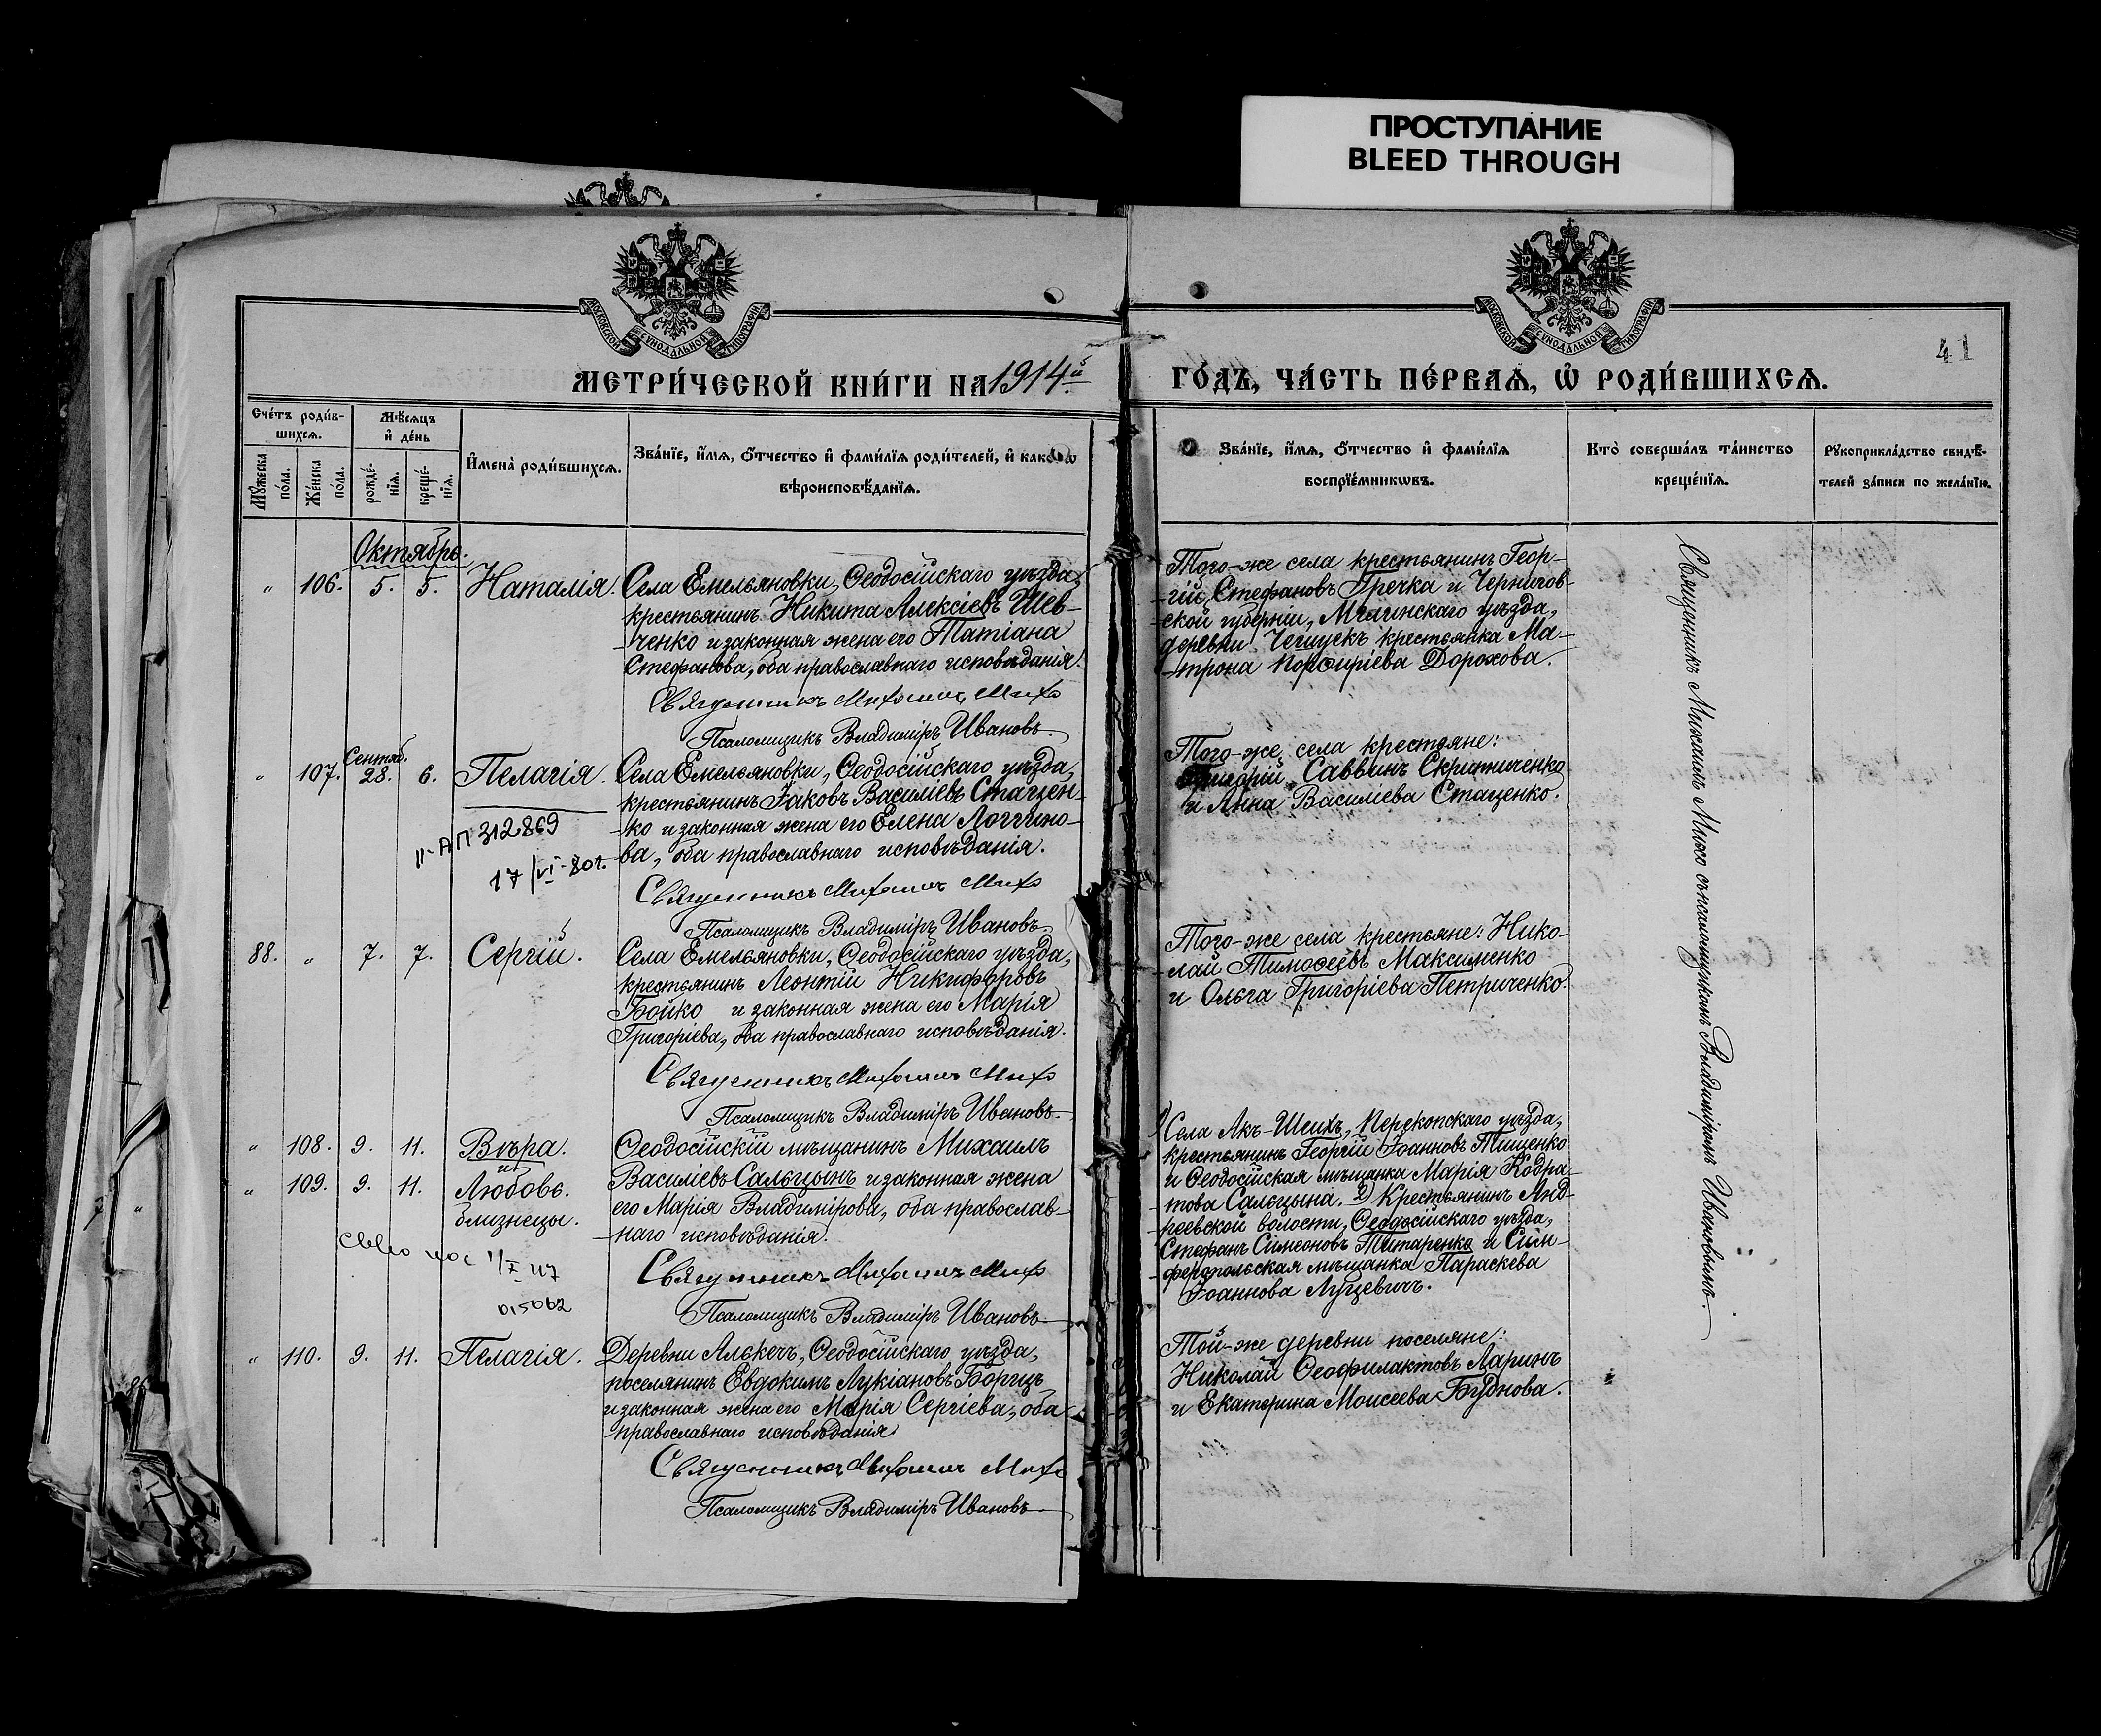 ПРОСТУПАНИЕ
BLEED THROUGH
МОСКОВСКОЙ СѴНОДАЛЬНОЙ ТИПОГРАФІИ
МОСКОВСКОЙ СѴНОДАЛЬНОЙ ТИПОГРАФІИ
41
МЕТРИ́ЧЕСКОЙ КНИ́ГИ НА 1914й
ГО́ДЪ, ЧА́СТЬ ПЕ́РВАѦ, Ѡ҆ РОДИ́ВШИХСѦ.
Сче́тъ роди́в-
шихсѧ.
Мѣ́сѧцъ
и҆ де́нь
Мꙋ́жеска по́ла.
Же́нска по́ла.
рожде́-
нїѧ.
креще́-
нїѧ.
И҆мена̀ роди́вшихсѧ.
Зва́нїе, и҆́мѧ, ѻ҆́тчество и҆ фами́лїѧ роди́телей, и҆ како́гѡ
вѣроисповѣ́данїѧ.
Зва́нїе, и҆́мѧ, ѻ҆́тчество и҆ фами́лїѧ
воспрїе́мникѡвъ.
Кто̀ соверша́лъ та́инство
креще́нїѧ.
Рꙋкоприкла́дство свидѣ́-
телей за́писи по жела́нїю.
Октябрь.
" 106. 5. 5. Наталія. Села Емельяновки, Ѳеодосійскаго уѣзда,
крестьянинъ Никита Алексіевъ Шев-
-ченко и законная жена его Татіана
Стефанова, оба православнаго исповѣданія.
Священникъ Михаилъ Михо
Псаломщикъ Владиміръ Ивановъ.
Того-же села крестьянинъ Геор-
-гій Стефановъ Гречка и Чернигов-
-ской губерніи, Мглинскаго уѣзда,
деревни крестьянка Ма-
-трона Порфиріева Дорохова.
Сентяб.
" 107. 28. 6. Пелагія. Села Емельяновки, Ѳеодосійскаго уѣзда,
крестьянинъ Іаковъ Василіевъ Стацен-
-ко и законная жена его Елена Логгино-
ва, оба православнаго исповѣданія.
II-АП 312869
17/VI-80г.
Священникъ Михаилъ Михо
Псаломщикъ Владиміръ Ивановъ.
Того-же села крестьяне:
Григорій Саввинъ Скрипниченко
и Анна Василіева Стаценко.
88. " 7. 7. Сергій. Села Емельяновки, Ѳеодосійскаго уѣзда,
крестьянинъ Леонтій Никифоровъ
Бойко и законная жена его Марія
Григоріева, оба православнаго исповѣданія.
Священникъ Михаилъ Михо
Псаломщикъ Владиміръ Ивановъ.
Того-же села крестьяне: Нико-
-лай Тимоѳеевъ Максименко
и Ольга Григоріева Петриченко.
" 108. 9. 11. Вѣра. Ѳеодосійскій мѣщанинъ Михаилъ
и
" 109. 9. 11. Любовь. Василіевъ Сальцынъ и законная жена
близнецы. его Марія Владимірова, оба православ-
-наго исповѣданія.
1/X 47
015062
Священникъ Михаилъ Михо
Псаломщикъ Владиміръ Ивановъ
1) Села Акъ-Шеихъ, Перекопскаго уѣзда,
крестьянинъ Георгій Іоанновъ Тищенко
и Ѳеодосійская мѣщанка Марія Кодра-
-това Сальцына. 2) Крестьянинъ Анд-
-реевской волости, Ѳеодосійскаго уѣзда,
Стефанъ Симеоновъ Титаренко и Сим-
-феропольская мѣщанка Параскева
Іоаннова Луцевичъ.
" 110. 9. 11. Пелагія. Деревни Алькечъ, Ѳеодосійскаго уѣзда,
поселянинъ Евдокимъ Лукіановъ Борицъ
и законная жена его Марія Сергіева, оба
православнаго исповѣданія
Священникъ Михаилъ Михо
Псаломщикъ Владиміръ Ивановъ
Той-же деревни поселяне:
Николай Ѳеофилактовъ Ларинъ
и Екатерина Моисеева Буднова.
Священникъ Михаилъ Михо съ псаломщикомъ Владиміромъ Ивановымъ.